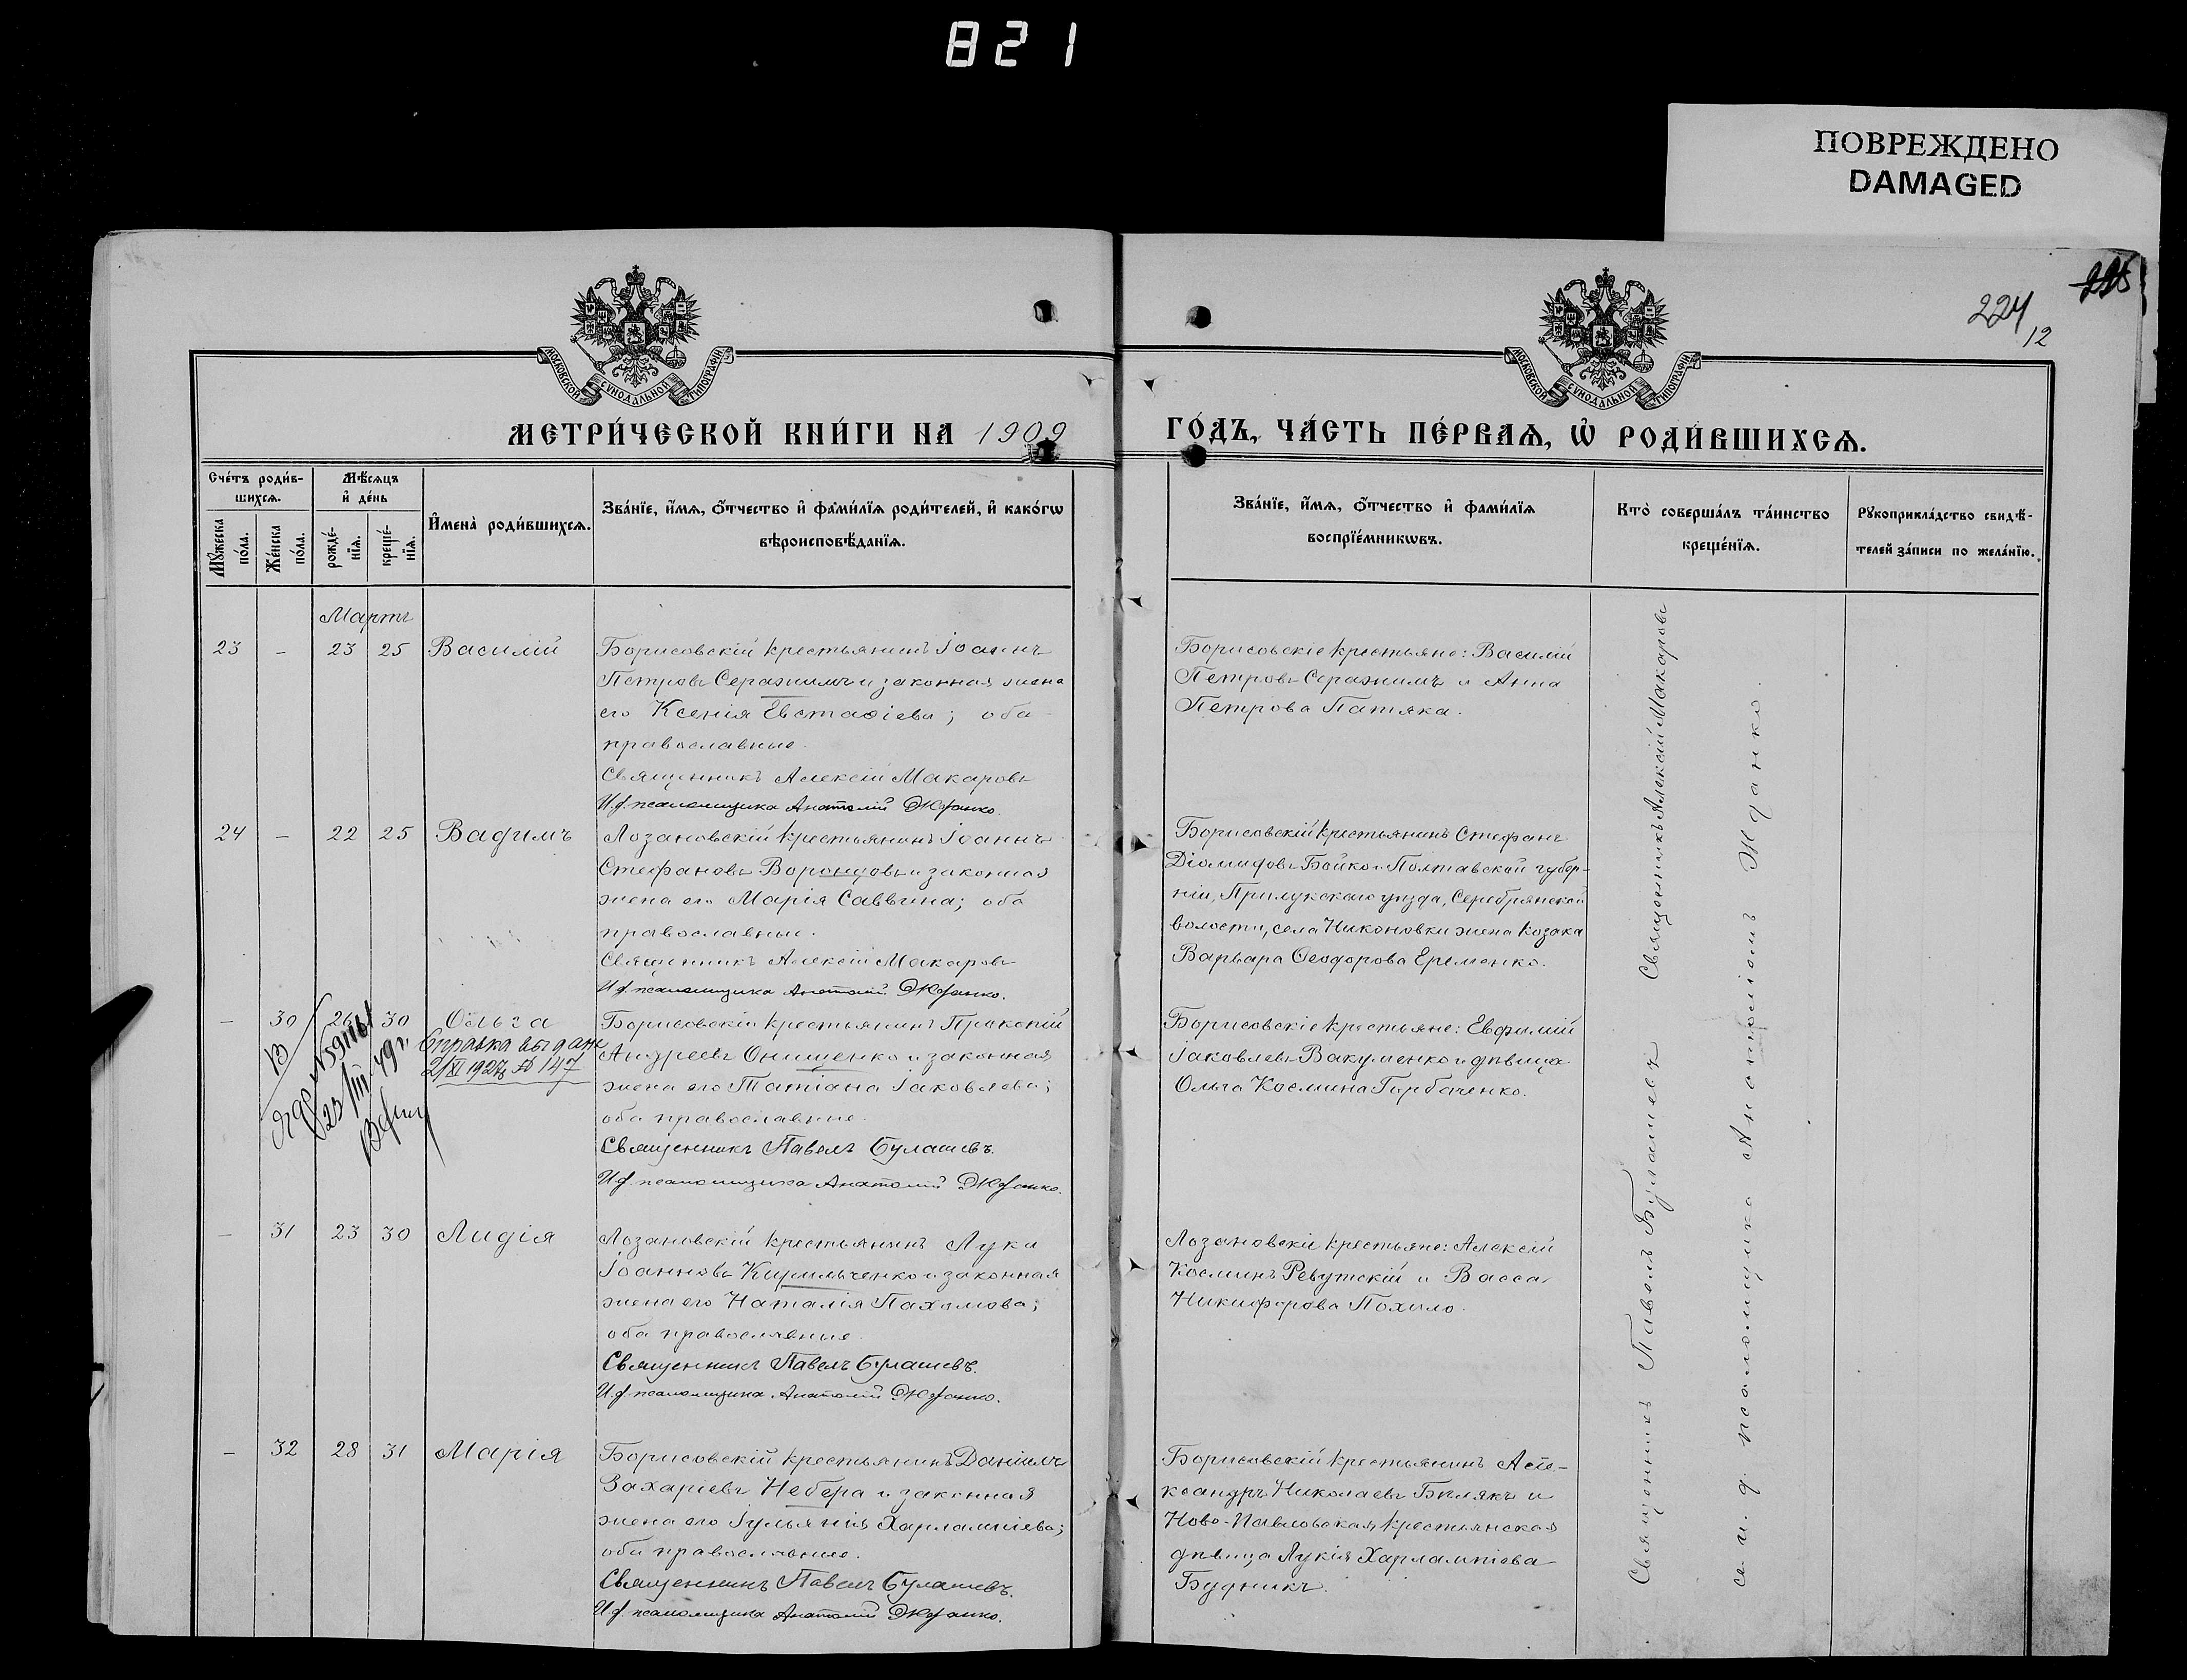 821
ПОВРЕЖДЕНО
DAMAGED
224
12
МОСКОВСКОЙ СѴНОДАЛЬНОЙ ТИПОГРАФІИ
МОСКОВСКОЙ СѴНОДАЛЬНОЙ ТИПОГРАФІИ
МЕТРИ́ЧЕСКОЙ КНИ́ГИ НА 1909
ГО́ДЪ, ЧА́СТЬ ПЕ́РВАѦ, Ѡ҆ РОДИ́ВШИХСѦ.
Сче́тъ роди́в-
шихсѧ.
Мꙋ́жеска по́ла.
Же́нска по́ла.
Мѣ́сѧцъ
и҆ де́нь
рожде́-
нїѧ.
креще́-
нїѧ.
И҆мена̀ роди́вшихсѧ.
Зва́нїе, и҆́мѧ, ѻ҆́тчество и҆ фами́лїѧ роди́телей, и҆ како́гѡ
вѣроисповѣ́данїѧ.
Зва́нїе, и҆́мѧ, ѻ҆́тчество и҆ фами́лїѧ
воспрїе́мникѡвъ.
Кто̀ соверша́лъ та́инство
креще́нїѧ.
Рꙋкоприкла́дство свидѣ́-
телей за́писи по жела́нїю.
Мартъ
23 – 23 25 Василій
Борисовскій крестьянинъ Іоаннъ
Петровъ Серажимъ и законная жена
его Ксенія Евстафіева; оба
православные.
Священникъ Алексій Макаровъ
И. д. псаломщика Анатолій Жданко.
Борисовскіе крестьяне: Василій
Петровъ Серажимъ и Анна
Петрова Патяка.
24 – 22 25 Вадимъ
Лозановскій крестьянинъ Іоаннъ
Стефановъ Воронцовъ и законная
жена его Марія Саввина; оба
православные.
Священникъ Алексій Макаровъ
И. д. псаломщика Анатолій Жданко.
Борисовскій крестьянинъ Стефанъ
Діомидовъ Бойко и Полтавской губер-
ніи, Прилукскаго уѣзда, Серебрянской
волости, села Никоновки жена козака
Варвара Ѳеодорова Еременко.
– 30 26 30 Ольга
Справка выдана
2/XI 1927г № 147
23/III 49г.
Борисовскій крестьянинъ Прокопій
Андреевъ Онищенко и законная
жена его Татіана Іаковлева;
оба православные.
Священникъ Павелъ Булашевъ.
И. д. псаломщика Анатолій Жданко.
Борисовскіе крестьяне: Евфимій
Іаковлевъ Вакуменко и дѣвица
Ольга Космина Горбаченко.
– 31 23 30 Лидія
Лозановскій крестьянинъ Лука
Іоанновъ Кирильченко и законная
жена его Наталія Пахомова;
оба православные.
Священникъ Павелъ Булашевъ.
И. д. псаломщика Анатолій Жданко.
Лозановскіе крестьяне: Алексій
Косминъ Ревутскій и Васса
Никифорова Похило.
– 32 28 31 Марія
Борисовскій крестьянинъ Даніилъ
Захаріевъ Небера и законная
жена его Іульянія Харлампіева;
оба православные.
Священникъ Павелъ Булашевъ.
И. д. псаломщика Анатолій Жданко.
Борисовскій крестьянинъ Але-
ксандръ Николаевъ Бѣлякъ и
Ново-Павловская крестьянская
дѣвица Лукія Харлампіева
Будникъ.
Священникъ Павелъ Булашевъ Священникъ Алексій Макаровъ
съ и. д. псаломщика Анатоліемъ Жданко.